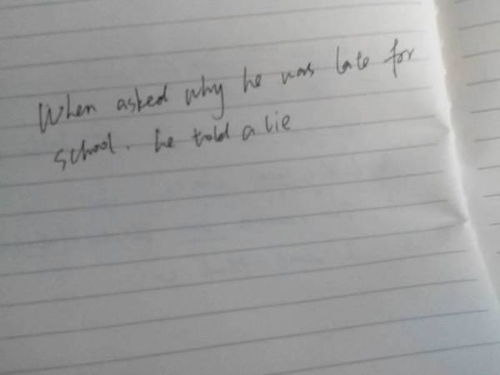 When asked why he was late for
school. he told a lie